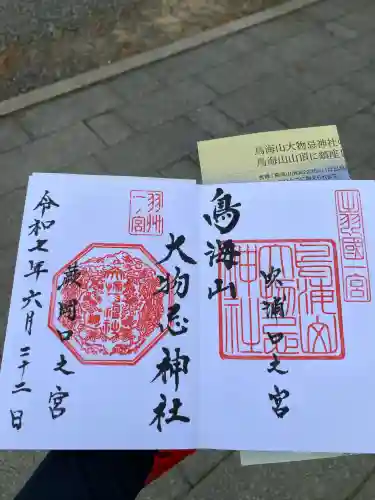 鳥海山大物忌神社
鳥海山山頂に鎮座
出羽國一宮
鳥海山
吹浦口之宮
羽州
一ノ宮
大物忌神社
蕨岡口之宮
令和七年六月二十二日